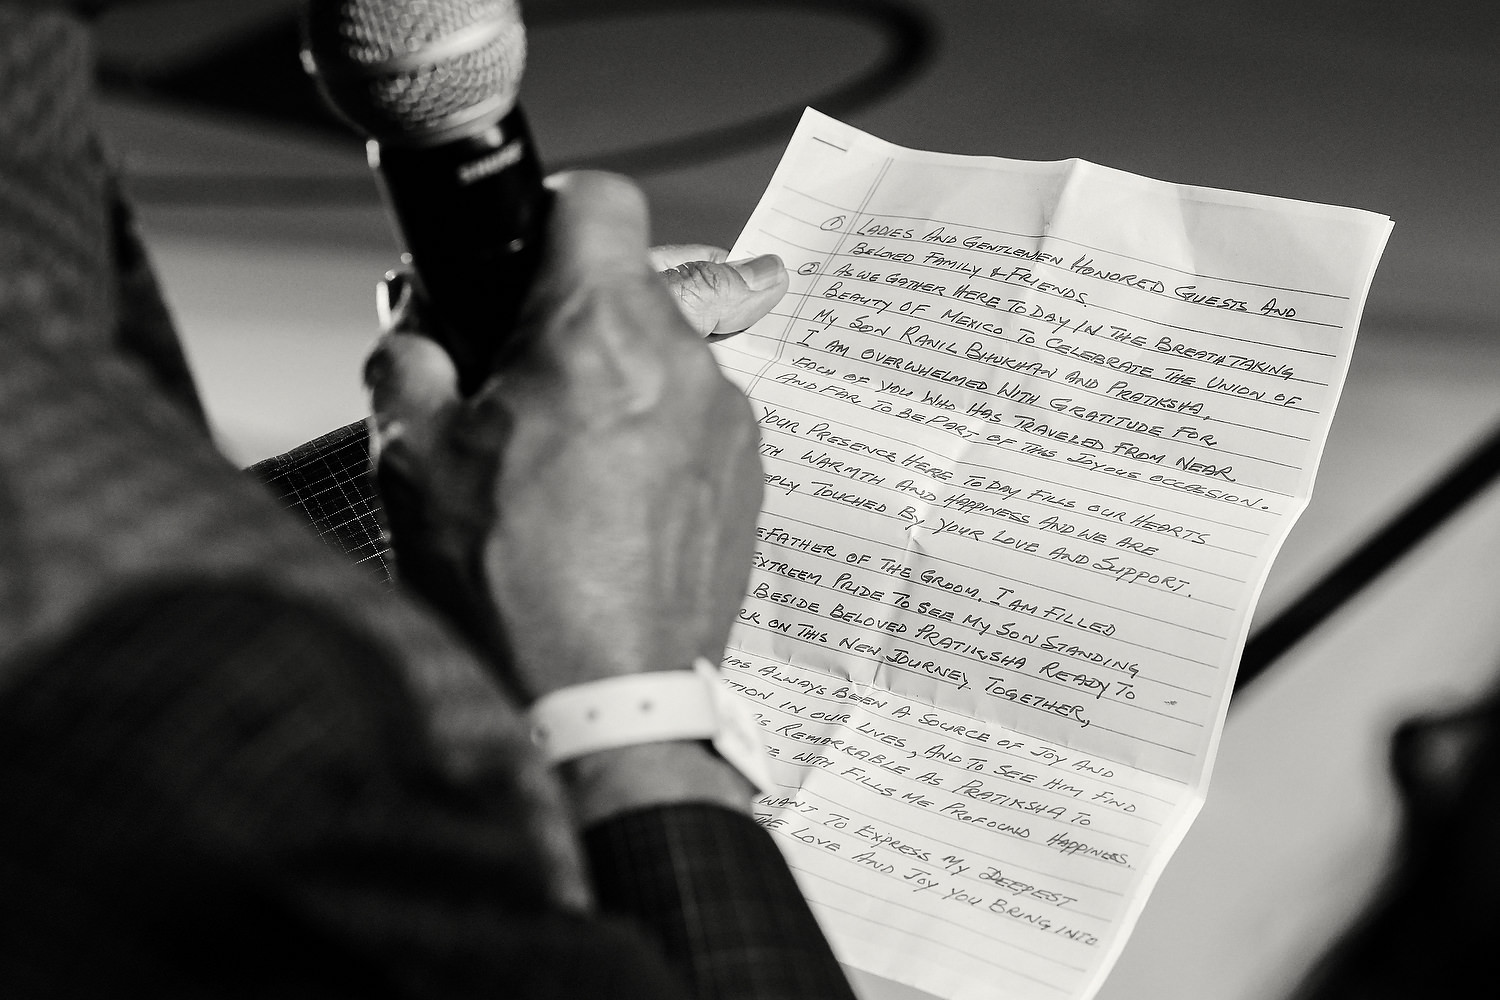 SHURE
① LADIES AND GENTLEMEN HONORED GUESTS AND
BELOVED FAMILY & FRIENDS
② AS WE GATHER HERE TODAY IN THE BREATHTAKING
BEAUTY OF MEXICO TO CELEBRATE THE UNION OF
MY SON RANIL BHUKHAN AND PRATIKSHA,
I AM OVERWHELMED WITH GRATITUDE FOR
EACH OF YOU WHO HAS TRAVELED FROM NEAR
AND FAR TO BE PART OF THIS JOYOUS OCCASSION.
YOUR PRESENCE HERE TODAY FILLS OUR HEARTS
ITH WARMTH AND HAPPINESS AND WE ARE
EPLY TOUCHED BY YOUR LOVE AND SUPPORT.
EFATHER OF THE GROOM, I AM FILLED
EXTREEM PRIDE TO SEE MY SON STANDING
BESIDE BELOVED PRATIKSHA READY TO
RK ON THIS NEW JOURNEY TOGETHER,
HAS ALWAYS BEEN A SOURCE OF JOY AND
TION IN OUR LIVES, AND TO SEE HIM FIND
AS REMARKABLE AS PRATIKSHA TO
E WITH FILLS ME PROFOUND HAPPINESS.
WANT TO EXPRESS MY DEEPEST
THE LOVE AND JOY YOU BRING INTO